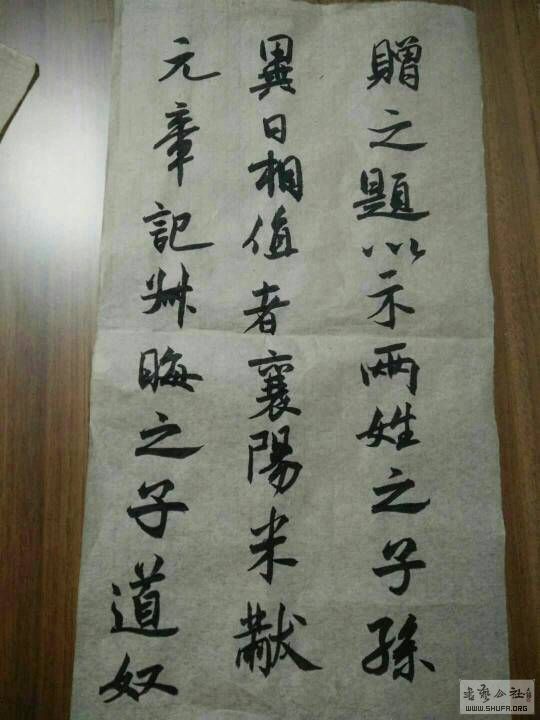 贈之題以示兩姓之子孫
異日相值者襄陽米黻
元章記叔晦之子道奴
书艺公社
WWW.SHUFA.ORG